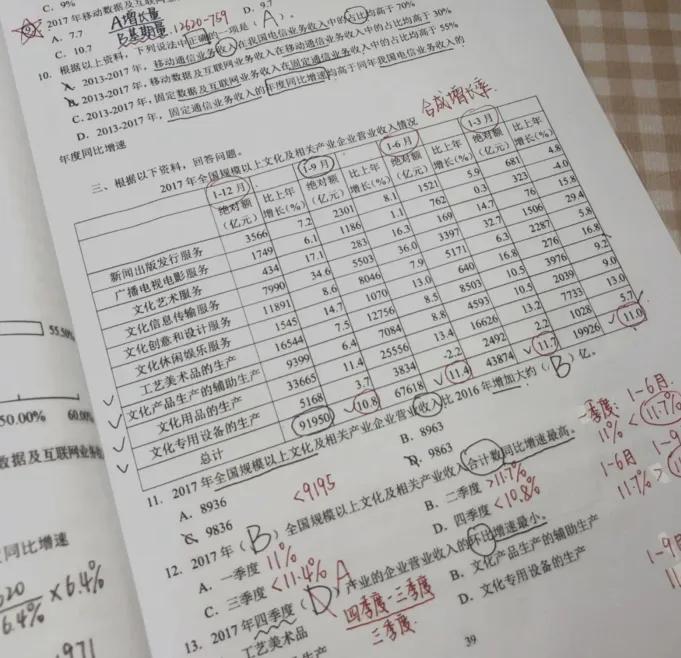 C. 9%
9. 2017年移动数据及互联网业务
A. 7.7
A增长量
D. 9.7
C. 10.7
B基期量
12620-759
10. 根据以上资料，下列说法中正确的一项是（A）。
A. 2013-2017年，移动通信业务收入在我国电信业务收入中的占比均高于70%
B. 2013-2017年，移动数据及互联网业务收入在移动通信业务收入中的占比均高于30%
C. 2013-2017年，固定数据及互联网业务收入在固定通信业务收入中的占比均高于55%
D. 2013-2017年，固定通信业务收入的年度同比增速均高于同年我国电信业务收入的
年度同比增速
合成增长率
三、根据以下资料，回答问题。
2017年全国规模以上文化及相关产业企业营业收入情况
1-12月 1-9月 1-6月 1-3月
绝对额（亿元） 比上年增长(%) 绝对额（亿元） 比上年增长(%) 绝对额（亿元） 比上年增长(%) 绝对额（亿元） 比上年增长(%)
新闻出版发行服务 3566 7.2 2301 8.1 1521 5.9 681 4.8
广播电视电影服务 1749 6.1 1186 1.1 762 0.3 323 -4.0
文化艺术服务 434 17.1 283 16.3 169 14.7 76 15.8
文化信息传输服务 7990 34.6 5503 36.0 3397 32.7 1506 29.4
文化创意和设计服务 11891 8.6 8046 7.9 5171 6.3 2287 5.8
文化休闲娱乐服务 1545 14.7 1070 13.0 640 16.8 276 16.8
工艺美术品的生产 16544 7.5 12756 8.5 8503 10.5 3976 9.2
文化产品生产的辅助生产 9399 6.4 7084 8.8 4593 10.5 2039 9.0
文化用品的生产 33665 11.4 25556 13.4 16626 13.2 7733 13.0
文化专用设备的生产 5168 3.7 3834 -2.2 2492 2.2 1028 5.7
总计 91950 10.8 67618 11.4 43874 11.7 19926 11.0
11. 2017年全国规模以上文化及相关产业企业营业收入比2016年增加大约（B）亿。
A. 8936
B. 8963
C. 9836
D. 9863
<9195
12. 2017年（B）全国规模以上文化及相关产业收入合计数同比增速最高。
A. 一季度 11%
B. 二季度 >11.7%
C. 三季度 <11.4%
D. 四季度 <10.8%
13. 2017年四季度（D）A产业的企业营业收入的环比增速最小。
四季度-三季度
三季度
工艺美术品
B. 文化产品生产的辅助生产
D. 文化专用设备的生产
39
一季度 1-6月
11% < 11.7%
1-6月 1-9
11.7% >
1-9月
55.50%
50.00% 60.00%
数据及互联网业务
同比增速
6.4% ×6.4%
971